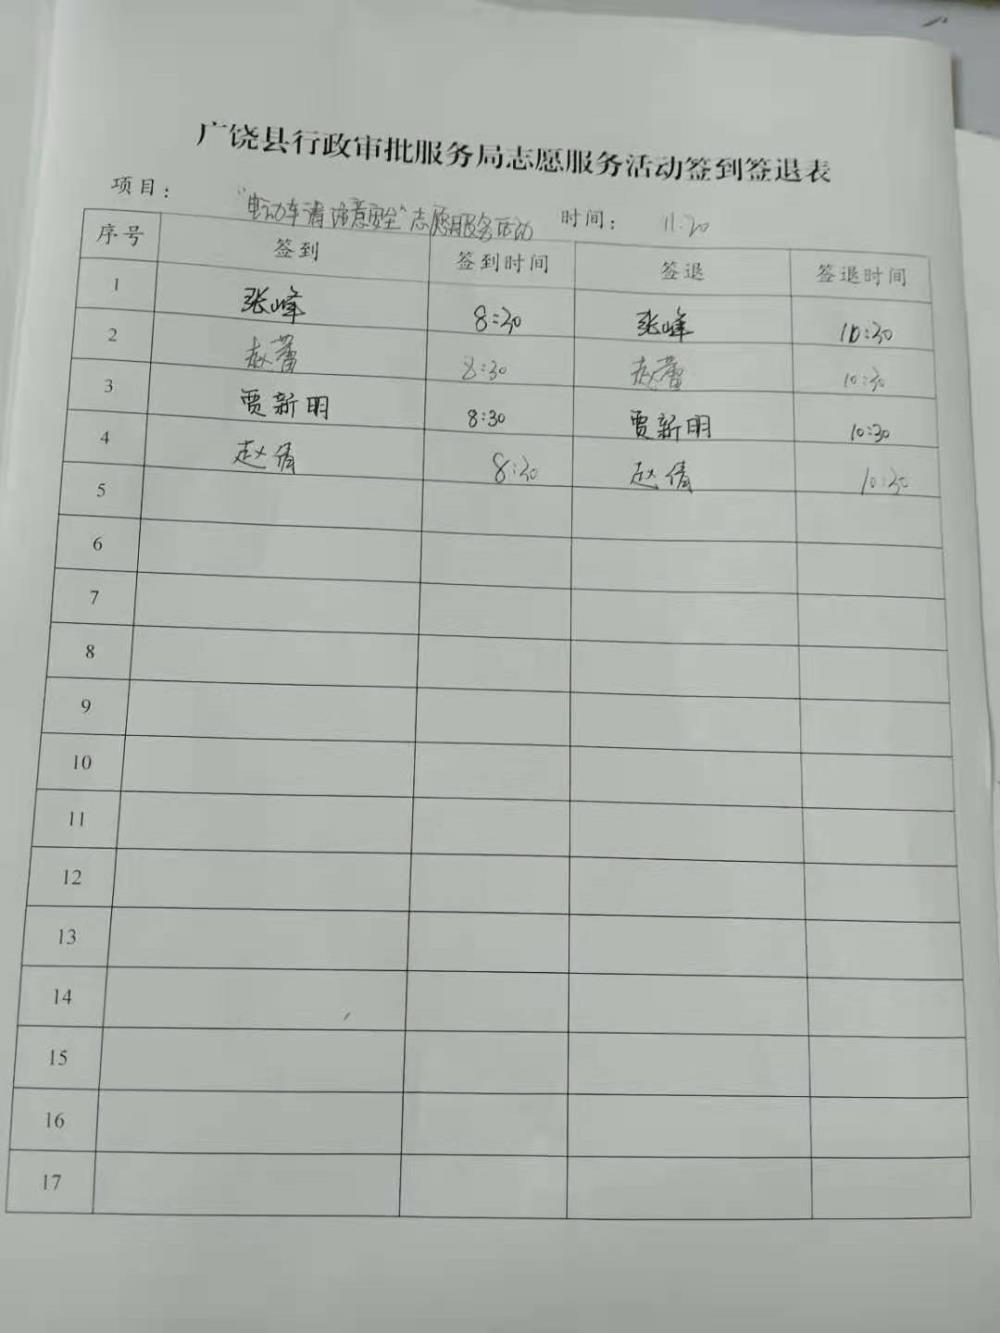 广饶县行政审批服务局志愿服务活动签到签退表
项目： “电动车请注意安全”志愿服务活动 时间： 11.20
序号 签到 签到时间 签退 签退时间
1 张峰 8:30 张峰 10:30
2 赵蕾 8:30 赵蕾 10:30
3 贾新明 8:30 贾新明 10:30
4 赵倩 8:30 赵倩 10:30
5
6
7
8
9
10
11
12
13
14
15
16
17